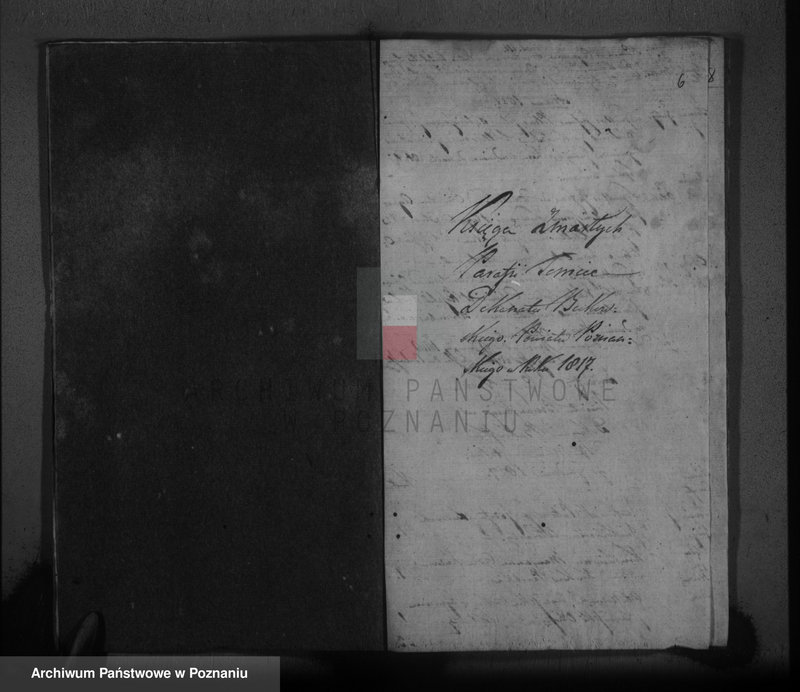 6 8
Księga Zmarłych
Parafii Tomice
Dekanatu Bukow-
skiego, Powiatu Poznań:
skiego Roku 1817.
ARCHIWUM PAŃSTWOWE
W POZNANIU
Archiwum Państwowe w Poznaniu